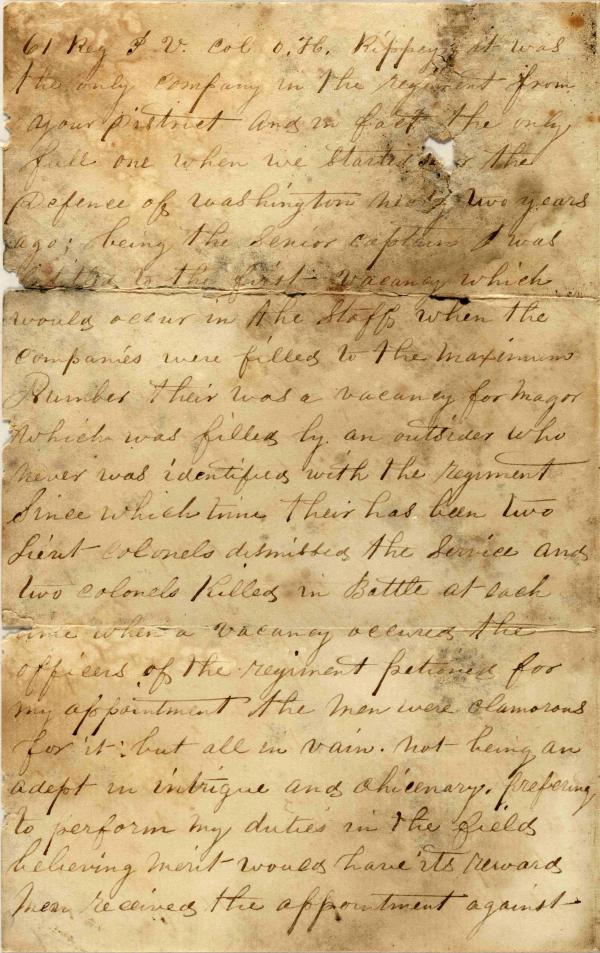 61 Reg P V. Col O. H. Rippey, it was
the only company in the regiment from
your District and in fact the only
full one when we started for the
Defence of Washington nearly two years
ago; being the Senior captain I was
entitled to the first vacancy which
would occur in the Staff when the
companies were filled to the Maximum
Number their was a vacancy for Magor
which was filled by an outsider who
never was identified with the regiment
Since which time their has been two
Lieut colonels dismissed the Service and
two colonels killed in Battle at each
time when a vacancy occured the
officers of the regiment petioned for
my appointment the men were clamorous
for it; but all in vain. not being an
adept in intrigue and chicenary. prefering
to perform my duties in the field
believing merit would have its reward
Men received the appointment against